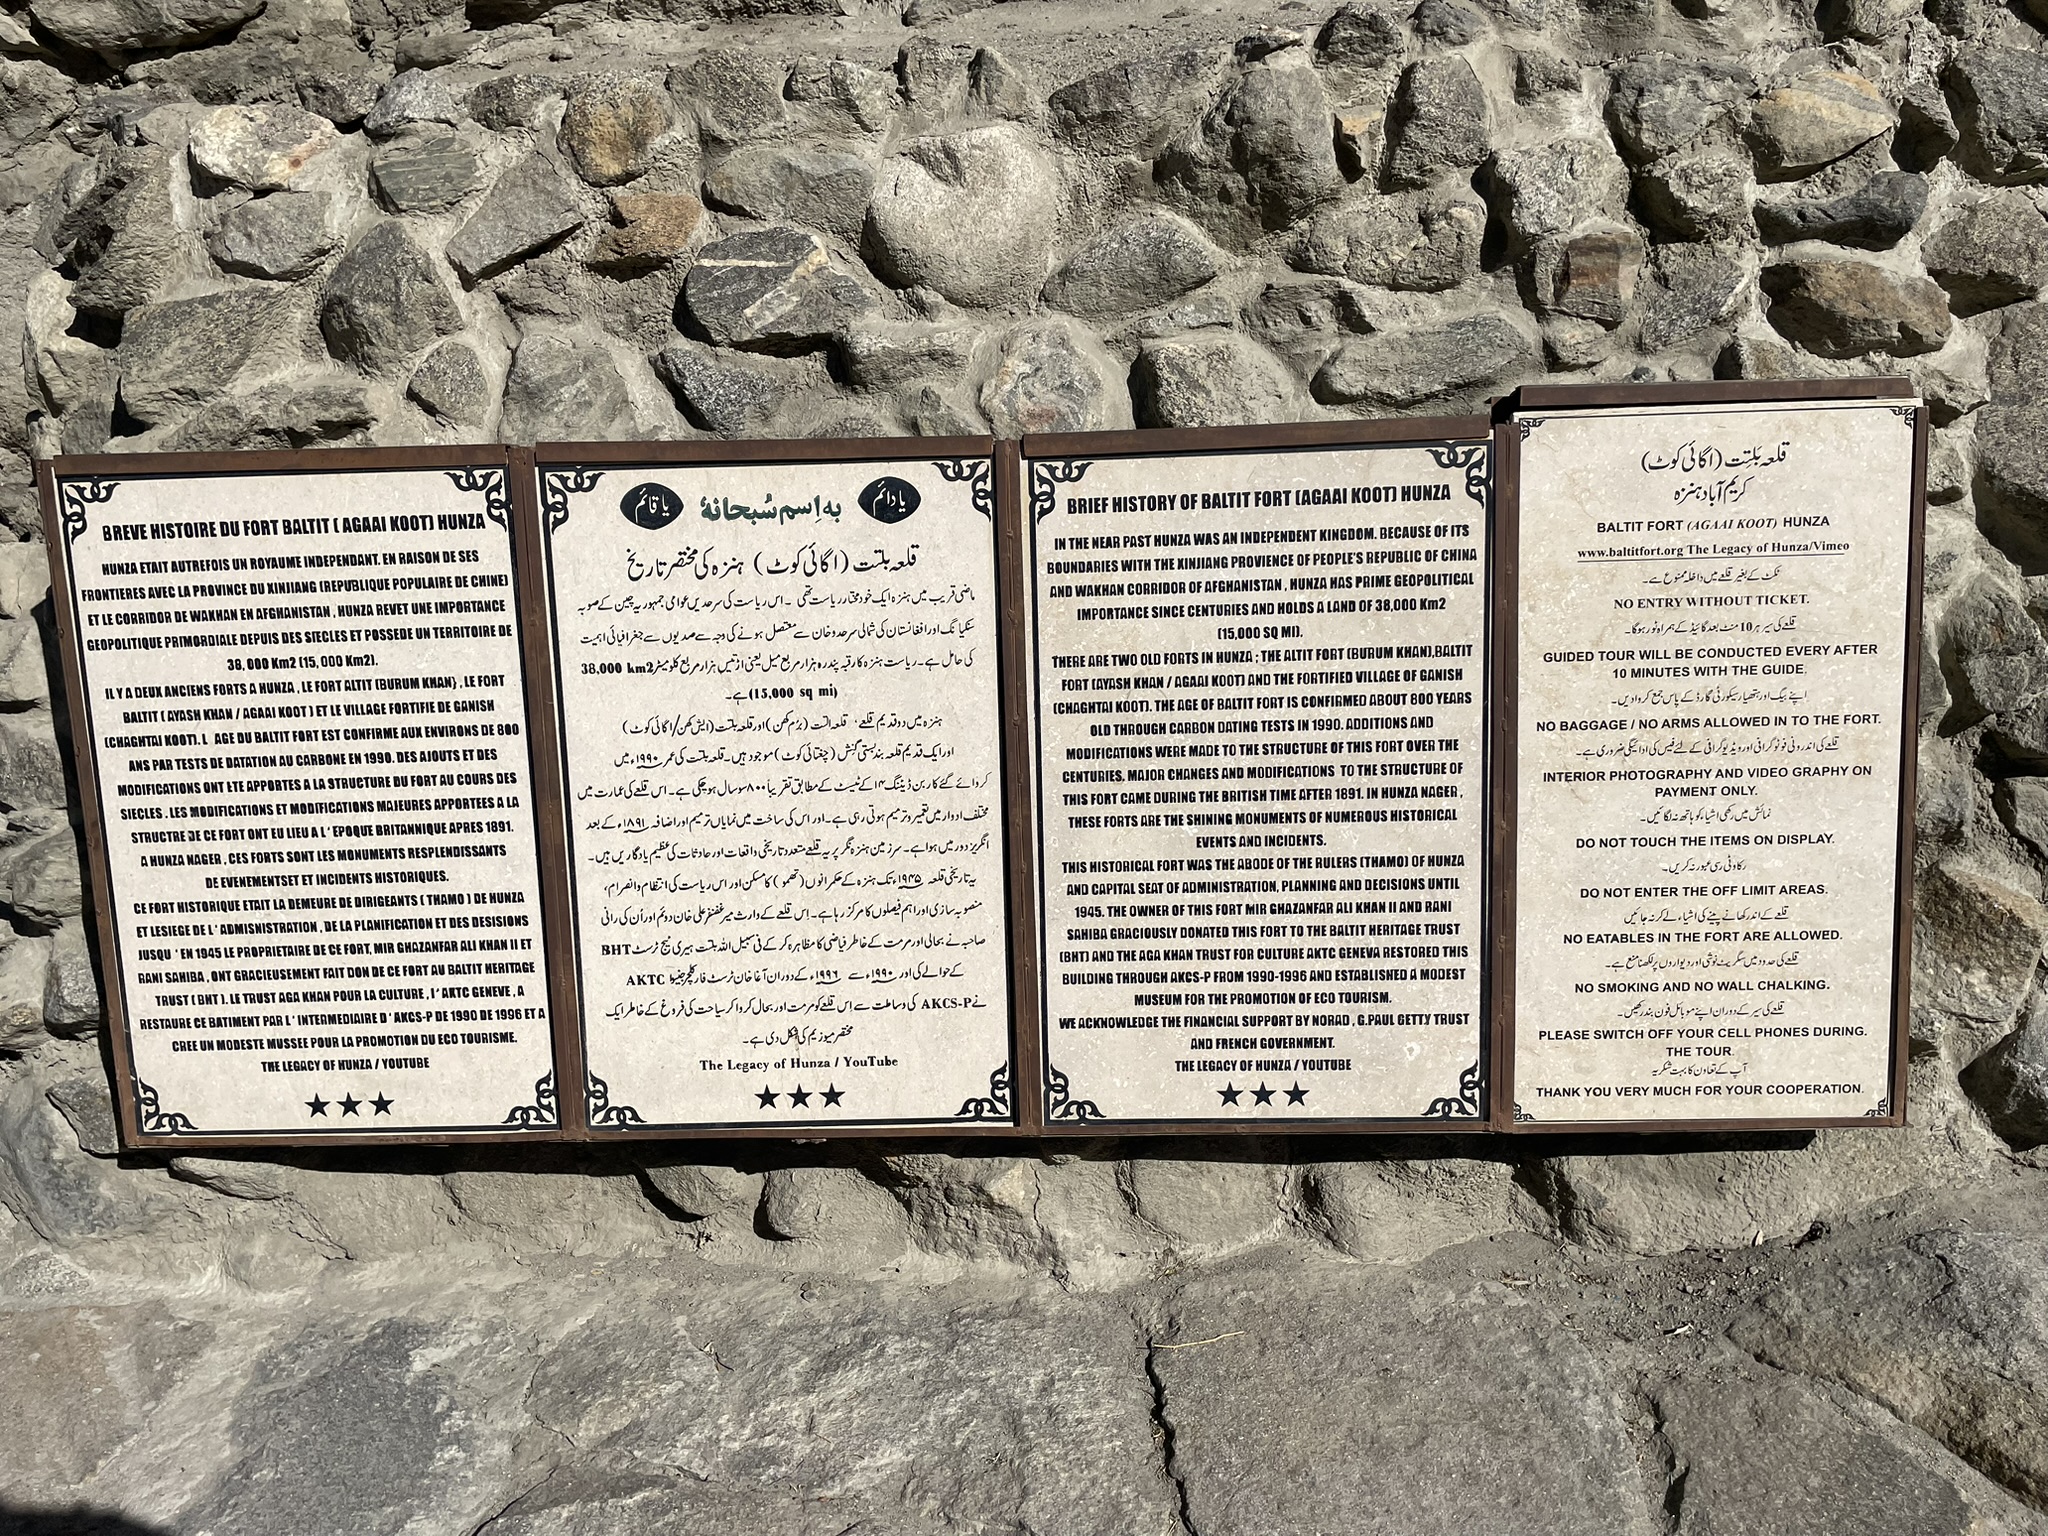 BREVE HISTOIRE DU FORT BALTIT ( AGAAI KOOT) HUNZA
HUNZA ETAIT AUTREFOIS UN ROYAUME INDEPENDANT. EN RAISON DE SES
FRONTIERES AVEC LA PROVINCE DU XINJIANG (REPUBLIQUE POPULAIRE DE CHINE)
ET LE CORRIDOR DE WAKHAN EN AFGHANISTAN , HUNZA REVET UNE IMPORTANCE
GEOPOLITIQUE PRIMORDIALE DEPUIS DES SIECLES ET POSSEDE UN TERRITOIRE DE
38, 000 Km2 (15, 000 Km2).
IL Y A DEUX ANCIENS FORTS A HUNZA , LE FORT ALTIT (BURUM KHAN} , LE FORT
BALTIT ( AYASH KHAN / AGAAI KOOT ) ET LE VILLAGE FORTIFIE DE GANISH
(CHAGHTAI KOOT). L AGE DU BALTIT FORT EST CONFIRME AUX ENVIRONS DE 800
ANS PAR TESTS DE DATATION AU CARBONE EN 1990. DES AJOUTS ET DES
MODIFICATIONS ONT ETE APPORTES A LA STRUCTURE DU FORT AU COURS DES
SIECLES . LES MODIFICATIONS ET MODIFICATIONS MAJEURES APPORTEES A LA
STRUCTRE DE CE FORT ONT EU LIEU A L ' EPOQUE BRITANNIQUE APRES 1891.
A HUNZA NAGER , CES FORTS SONT LES MONUMENTS RESPLENDISSANTS
DE EVENEMENTSET ET INCIDENTS HISTORIQUES.
CE FORT HISTORIQUE ETAIT LA DEMEURE DE DIRIGEANTS ( THAMO ) DE HUNZA
ET LESIEGE DE L ' ADMISNISTRATION , DE LA PLANIFICATION ET DES DESISIONS
JUSQU ' EN 1945 LE PROPRIETAIRE DE CE FORT, MIR GHAZANFAR ALI KHAN II ET
RANI SAHIBA , ONT GRACIEUSEMENT FAIT DON DE CE FORT AU BALTIT HERITAGE
TRUST ( BHT ). LE TRUST AGA KHAN POUR LA CULTURE , l ' AKTC GENEVE , A
RESTAURE CE BATIMENT PAR L ' INTERMEDIAIRE D ' AKCS-P DE 1990 DE 1996 ET A
CREE UN MODESTE MUSEE POUR LA PROMOTION DU ECO TOURISME.
THE LEGACY OF HUNZA / YOUTUBE
یا قائم
بہ اِسم سُبحانہٗ
یا دائم
قلعہ بلتت (اگائی کوٹ) ہنزہ کی مختصر تاریخ
ماضی قریب میں ہنزہ ایک خود مختار ریاست تھی ۔ اس ریاست کی سرحدیں عوامی جمہوریہ چین کے صوبہ
سنکیانگ اور افغانستان کی شمالی سرحد وخان سے متصل ہونے کی وجہ سے صدیوں سے جغرافیائی اہمیت
کی حامل ہے۔ ریاست ہنزہ کا رقبہ پندرہ ہزار مربع میل یعنی اڑتیس ہزار مربع کلومیٹر 38,000 km2
(15,000 sq mi) ہے۔
ہنزہ میں دو قدیم قلعے، قلعہ التت (برُم کھن) اور قلعہ بلتت (ایش کھن/اگائی کوٹ)
اور ایک قدیم قلعہ بند بستی گنش (چغتائی کوٹ) موجود ہیں۔ قلعہ بلتت کی عمر ۱۹۹۰ء میں
کروائے گئے کاربن ڈیٹنگ ۱۴ کے ٹیسٹ کے مطابق تقریباً ۸۰۰ سو سال ہو چکی ہے۔ اس قلعے کی عمارت میں
مختلف ادوار میں تعمیر و ترمیم ہوتی رہی ہے۔ اور اس کی ساخت میں نمایاں ترمیم اور اضافہ ۱۸۹۱ء کے بعد
انگریز دور میں ہوا ہے۔ سرزمین ہنزہ نگر پر یہ قلعے متعدد تاریخی واقعات اور حادثات کی عظیم یادگاریں ہیں۔
یہ تاریخی قلعہ ۱۹۴۵ء تک ہنزہ کے حکمرانوں (تھمو) کا مسکن اور اس ریاست کی انتظام وانصرام،
منصوبہ سازی اور اہم فیصلوں کا مرکز رہا ہے۔ اِس قلعے کے وارث میر غضنفر علی خان دوئم اور اُن کی رانی
صاحبہ نے بحالی اور مرمت کے خاطر فیاضی کا مظاہرہ کر کے فی سبیل اللہ بلتت ہیری ٹیج ٹرسٹ BHT
کے حوالے کی اور ۱۹۹۰ء سے ۱۹۹۶ء کے دوران آغا خان ٹرسٹ فار کلچر جنیوا AKTC
نے AKCS-P کی وساطت سے اِس قلعے کو مرمت اور بحال کروا کر سیاحت کی فروغ کے خاطر ایک
مختصر میوزیم کی شکل دی ہے۔
The Legacy of Hunza / YouTube
BRIEF HISTORY OF BALTIT FORT (AGAAI KOOT) HUNZA
IN THE NEAR PAST HUNZA WAS AN INDEPENDENT KINGDOM. BECAUSE OF ITS
BOUNDARIES WITH THE XINJIANG PROVIENCE OF PEOPLE'S REPUBLIC OF CHINA
AND WAKHAN CORRIDOR OF AFGHANISTAN , HUNZA HAS PRIME GEOPOLITICAL
IMPORTANCE SINCE CENTURIES AND HOLDS A LAND OF 38,000 Km2
(15,000 SQ MI).
THERE ARE TWO OLD FORTS IN HUNZA ; THE ALTIT FORT (BURUM KHAN),BALTIT
FORT (AYASH KHAN / AGAAI KOOT) AND THE FORTIFIED VILLAGE OF GANISH
(CHAGHTAI KOOT). THE AGE OF BALTIT FORT IS CONFIRMED ABOUT 800 YEARS
OLD THROUGH CARBON DATING TESTS IN 1990. ADDITIONS AND
MODIFICATIONS WERE MADE TO THE STRUCTURE OF THIS FORT OVER THE
CENTURIES. MAJOR CHANGES AND MODIFICATIONS TO THE STRUCTURE OF
THIS FORT CAME DURING THE BRITISH TIME AFTER 1891. IN HUNZA NAGER ,
THESE FORTS ARE THE SHINING MONUMENTS OF NUMEROUS HISTORICAL
EVENTS AND INCIDENTS.
THIS HISTORICAL FORT WAS THE ABODE OF THE RULERS (THAMO) OF HUNZA
AND CAPITAL SEAT OF ADMINISTRATION, PLANNING AND DECISIONS UNTIL
1945. THE OWNER OF THIS FORT MIR GHAZANFAR ALI KHAN II AND RANI
SAHIBA GRACIOUSLY DONATED THIS FORT TO THE BALTIT HERITAGE TRUST
(BHT) AND THE AGA KHAN TRUST FOR CULTURE AKTC GENEVA RESTORED THIS
BUILDING THROUGH AKCS-P FROM 1990-1996 AND ESTABLISHED A MODEST
MUSEUM FOR THE PROMOTION OF ECO TOURISM.
WE ACKNOWLEDGE THE FINANCIAL SUPPORT BY NORAD , G.PAUL GETTY TRUST
AND FRENCH GOVERNMENT.
THE LEGACY OF HUNZA / YOUTUBE
قلعہ بَلتِت (اگائی کوٹ)
کریم آباد ہنزہ
BALTIT FORT (AGAAI KOOT) HUNZA
www.baltitfort.org The Legacy of Hunza/Vimeo
ٹکٹ کے بغیر قلعے میں داخلہ ممنوع ہے۔
NO ENTRY WITHOUT TICKET.
قلعے کی سیر ہر 10 منٹ بعد گائیڈ کے ہمراہ ٹور ہوگا۔
GUIDED TOUR WILL BE CONDUCTED EVERY AFTER
10 MINUTES WITH THE GUIDE.
اپنے بیگ اور ہتھیار سیکورٹی گارڈ کے پاس جمع کروا دیں۔
NO BAGGAGE / NO ARMS ALLOWED IN TO THE FORT.
قلعے کی اندرونی فوٹو گرافی اور ویڈیو گرافی کے لئے فیس کی ادائیگی ضروری ہے۔
INTERIOR PHOTOGRAPHY AND VIDEO GRAPHY ON
PAYMENT ONLY.
نمائش میں رکھی اشیاء کو ہاتھ نہ لگائیں۔
DO NOT TOUCH THE ITEMS ON DISPLAY.
رکاوٹی رسی عبور نہ کریں۔
DO NOT ENTER THE OFF LIMIT AREAS.
قلعے کے اندر کھانے پینے کی اشیاء لے کر نہ جائیں
NO EATABLES IN THE FORT ARE ALLOWED.
قلعے کی حدود میں سگریٹ نوشی اور دیواروں پر لکھنا منع ہے۔
NO SMOKING AND NO WALL CHALKING.
قلعے کی سیر کے دوران اپنے موبائل فون بند رکھیں۔
PLEASE SWITCH OFF YOUR CELL PHONES DURING.
THE TOUR.
آپ کے تعاون کا بہت شکریہ
THANK YOU VERY MUCH FOR YOUR COOPERATION.